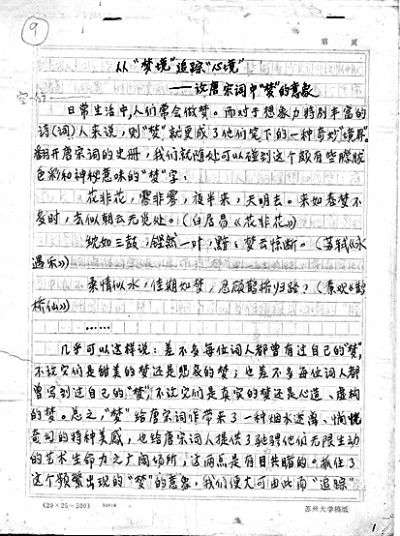 9
第 页
从“梦境”追踪“心境”
——谈唐宋词中“梦”的意象
空一行
日常生活中,人们常会做梦。而对于想象力特别丰富的
诗(词)人来说,则“梦”就更成了他们笔下的一种奇妙“境界”。
翻开唐宋词的史册,我们就随处可以碰到这个颇有些朦胧
色彩和神秘意味的“梦”字:
花非花,雾非雾,夜半来,天明去。来如春梦不
多时,去似朝云无觅处。(白居易《花非花》)
紞如三鼓,铿然一叶,黯黯梦云惊断。(苏轼《永
遇乐》)
柔情似水,佳期如梦,忍顾鹊桥归路?(秦观《鹊
桥仙》)
……
几乎可以这样说:差不多每位词人都曾有过自己的“梦”,
不论它们是甜美的梦还是悲哀的梦;也差不多每位词人都
曾写到过自己的“梦”,不论它们是真实的梦还是心造、虚构
的梦。总之,“梦”给唐宋词作带来了一种烟水迷离、惝恍
奇幻的特种美感,也给唐宋词人提供了驰骋他们无限生动
的艺术生命力之广阔场所,这两点是有目共睹的。抓住了
这个频繁出现的“梦”的意象,我们便大可由此而“追踪”
(20×25=500)
苏州大学稿纸
1